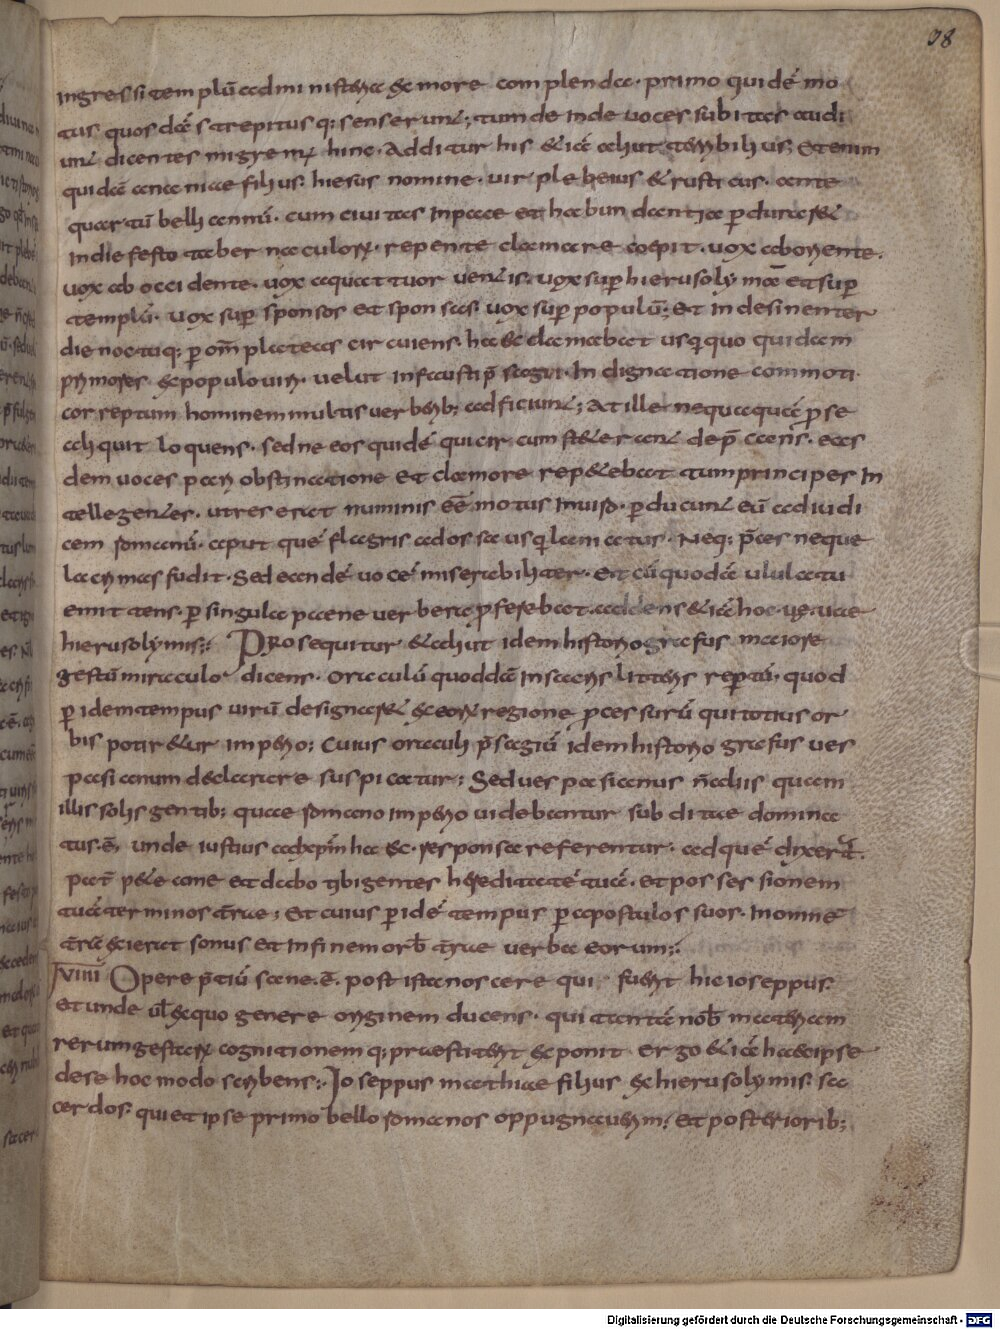 98
ingressi templū ad ministeria ex more complenda. primo quidē mo
tus quosdā strepitusq; senserunt; tum deinde uoces subitas audi
unt dicentes migrem hinc. Additur his & iā aliut terribilius; Etenim
quidā ananiae filius hiesus nomine. uir plebeius & rusticus. ante
quartū belli annū. cum ciuitas inpace et habundantia pduraret
Indie festo tabernaculorum. repente clamare coepit. uox ab oriente.
uox ab occidente. uox a quattuor uentis. uox sup hierusolymā et sup
templū. uox sup sponsos et sponsas. uox sup populū; Et indesinenter
die noctuq; p om̄ plateas circuiens. haec clamabat usquequo quidam
primores ex populo uiri. uelut infausti p̄sagii. Indignatione commoti
correptum hominem multis uerberib; adficiunt; At ille nequaquā p se
aliquit loquens. sed ne eos quidē qui circumsteterant dep̄cans. eas
dem uoces pari obstinatione et clamore repetebat tum principes In
tellegentes. ut res erat numinis eē motus inuiro. pducunt eū ad iudi
cem romanū. aput quē flagris ad ossa usq; laniatus. Neq; p̄ces neque
lacrimas fudit. Sed eandē uocē miserabiliter. et cū quodā ululatu
emittens. p singula paene uerbera proferebat. addens & iā hoc. ue. uae
hierusolymis;: Prosequitur & aliut idem historiografus maiore
gestū miraculo dicens. oraculū quoddā insacris litteris repertū. quod
p idem tempus uirū designaret ex eorum regione processurū qui totius or
bis potiretur imperio; Cuius oraculi p̄sagiū idem historiografus ues
pasianum declarare suspicatur; Sed uespasianus n̄ aliis quam
illis solis gentib; quae romano imperio uidebantur subditae domina
tus.ē. unde iustius ad xp̄m haec responsa referentur. ad quē dixerat.
pater pete a me et dabo tibi gentes hereditatē tuā. et possessionem
tuā terminos terrae; Et cuius p idē tempus p apostolos suos. In omnē
terrā exierat sonus et in finem orb̄ terrae uerba eorum;:
VIIII Opere p̄tiū sane.ē. post ista noscere qui fuerit hic ioseppus.
et unde ul̄ ex quo genere originem ducens. qui tantā nob̄ materiam
rerum gestarum cognitionemq; praestiterit exponit ergo & iā haec ipse
de se hoc modo scribens;: Ioseppus mathiae filius ex hierusolymis. sa
cerdos. qui et ipse primo bello romanos oppugnauerim. Et posteriorib;
Digitalisierung gefördert durch die Deutsche Forschungsgemeinschaft - DFG